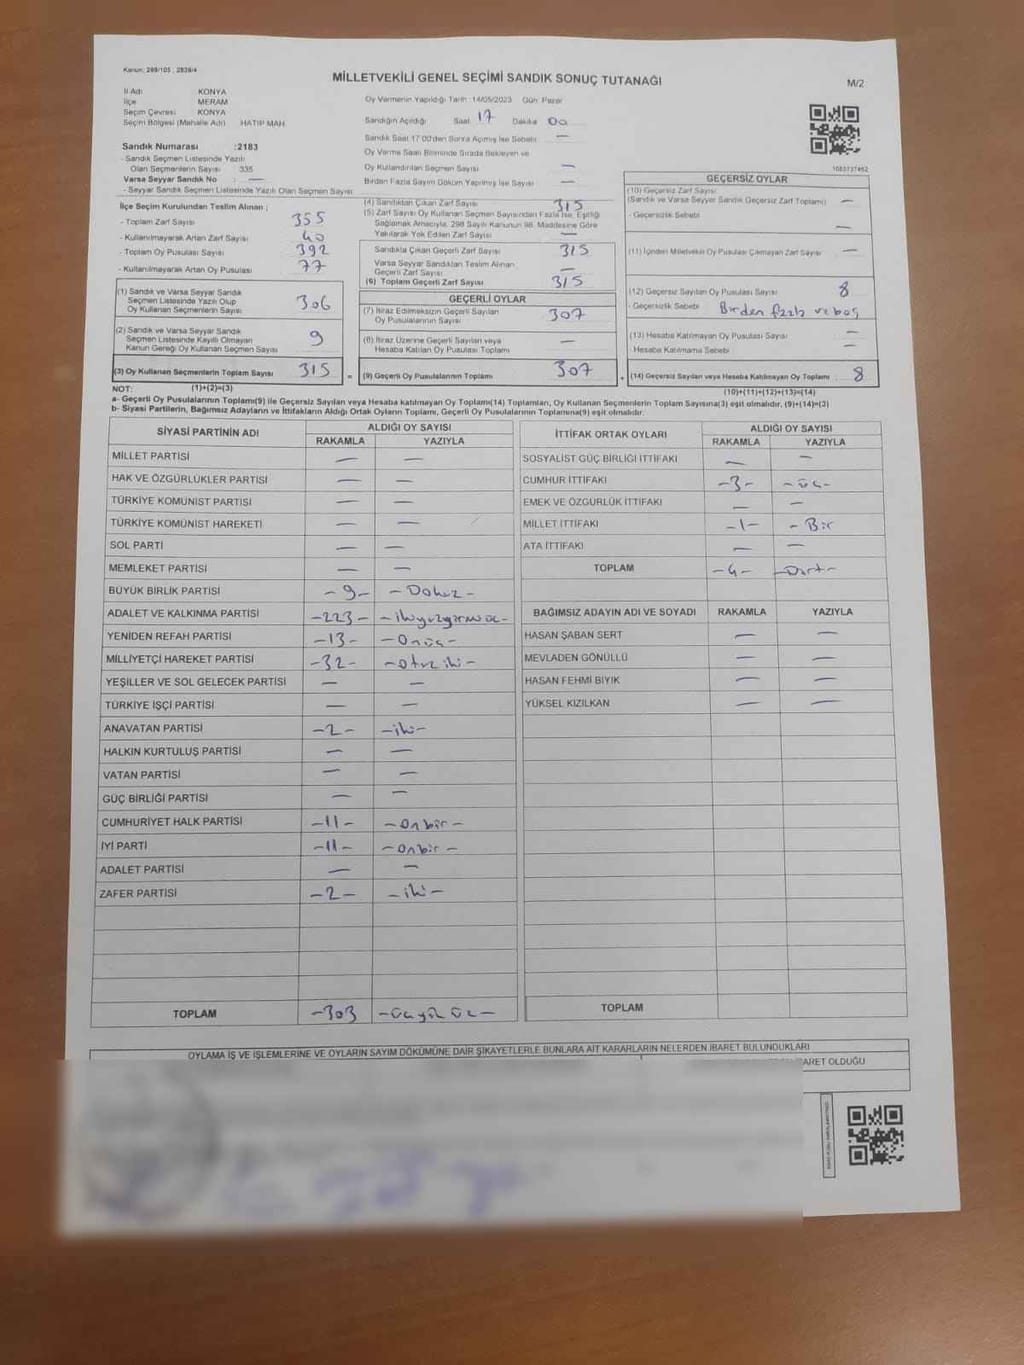 Kanun: 298/105 ; 2839/4
MİLLETVEKİLİ GENEL SEÇİMİ SANDIK SONUÇ TUTANAĞI
M/2
İl Adı KONYA
İlçe MERAM
Seçim Çevresi KONYA
Seçim Bölgesi (Mahalle Adı) HATIP MAH.
Sandık Numarası :2183
- Sandık Seçmen Listesinde Yazılı
Olan Seçmenlerin Sayısı : 335
Varsa Seyyar Sandık No : —
- Seyyar Sandık Seçmen Listesinde Yazılı Olan Seçmen Sayısı
Oy Vermenin Yapıldığı Tarih :14/05/2023 Gün: Pazar
Sandığın Açıldığı Saat 17 Dakika 00
Sandık Saat 17:00'den Sonra Açılmış İse Sebebi —
Oy Verme Saati Bitiminde Sırada Bekleyen ve
Oy Kullandırılan Seçmen Sayısı —
Birden Fazla Sayım Döküm Yapılmış İse Sayısı —
1083737462
İlçe Seçim Kurulundan Teslim Alınan ;
- Toplam Zarf Sayısı 355
- Kullanılmayarak Artan Zarf Sayısı 40
- Toplam Oy Pusulası Sayısı 392
- Kullanılmayarak Artan Oy Pusulası 77
(1) Sandık ve Varsa Seyyar Sandık
Seçmen Listesinde Yazılı Olup
Oy Kullanan Seçmenlerin Sayısı 306
(2) Sandık ve Varsa Seyyar Sandık
Seçmen Listesinde Kayıtlı Olmayan
Kanun Gereği Oy Kullanan Seçmen Sayısı 9
(3) Oy Kullanan Seçmenlerin Toplam Sayısı 315
(4) Sandıktan Çıkan Zarf Sayısı 315
(5) Zarf Sayısı Oy Kullanan Seçmen Sayısından Fazla İse, Eşitliği
Sağlamak Amacıyla, 298 Sayılı Kanunun 98. Maddesine Göre
Yakılarak Yok Edilen Zarf Sayısı —
Sandıkta Çıkan Geçerli Zarf Sayısı 315
Varsa Seyyar Sandıktan Teslim Alınan
Geçerli Zarf Sayısı —
(6) Toplam Geçerli Zarf Sayısı 315
GEÇERLİ OYLAR
(7) İtiraz Edilmeksizin Geçerli Sayılan
Oy Pusulalarının Sayısı 307
(8) İtiraz Üzerine Geçerli Sayılan veya
Hesaba Katılan Oy Pusulası Toplamı —
= (9) Geçerli Oy Pusulalarının Toplamı 307
GEÇERSİZ OYLAR
(10) Geçersiz Zarf Sayısı
(Sandık ve Varsa Seyyar Sandık Geçersiz Zarf Toplamı) —
- Geçersizlik Sebebi —
(11) İçinden Milletvekili Oy Pusulası Çıkmayan Zarf Sayısı —
(12) Geçersiz Sayılan Oy Pusulası Sayısı 8
- Geçersizlik Sebebi Birden fazla ve boş
(13) Hesaba Katılmayan Oy Pusulası Sayısı —
Hesaba Katılmama Sebebi —
+ (14) Geçersiz Sayılan veya Hesaba Katılmayan Oy Toplamı 8
NOT: (1)+(2)=(3)
(10)+(11)+(12)+(13)=(14)
a- Geçerli Oy Pusulalarının Toplamı(9) ile Geçersiz Sayılan veya Hesaba katılmayan Oy Toplamı(14) Toplamları, Oy Kullanan Seçmenlerin Toplam Sayısına(3) eşit olmalıdır. (9)+(14)=(3)
b- Siyasi Partilerin, Bağımsız Adayların ve İttifakların Aldığı Ortak Oyların Toplamı, Geçerli Oy Pusulalarının Toplamına(9) eşit olmalıdır.
SİYASİ PARTİNİN ADI ALDIĞI OY SAYISI
RAKAMLA YAZIYLA
MİLLET PARTİSİ — —
HAK VE ÖZGÜRLÜKLER PARTİSİ — —
TÜRKİYE KOMÜNİST PARTİSİ — —
TÜRKİYE KOMÜNİST HAREKETİ — —
SOL PARTİ — —
MEMLEKET PARTİSİ — —
BÜYÜK BİRLİK PARTİSİ -9- -Dokuz-
ADALET VE KALKINMA PARTİSİ -223- -ikiyüzyirmiüç-
YENİDEN REFAH PARTİSİ -13- -Onüç-
MİLLİYETÇİ HAREKET PARTİSİ -32- -otuz iki-
YEŞİLLER VE SOL GELECEK PARTİSİ — —
TÜRKİYE İŞÇİ PARTİSİ — —
ANAVATAN PARTİSİ -2- -iki-
HALKIN KURTULUŞ PARTİSİ — —
VATAN PARTİSİ — —
GÜÇ BİRLİĞİ PARTİSİ — —
CUMHURİYET HALK PARTİSİ -11- -onbir-
İYİ PARTİ -11- -onbir-
ADALET PARTİSİ — —
ZAFER PARTİSİ -2- -iki-
TOPLAM -303- -üçyüz üç-
İTTİFAK ORTAK OYLARI ALDIĞI OY SAYISI
RAKAMLA YAZIYLA
SOSYALİST GÜÇ BİRLİĞİ İTTİFAKI — —
CUMHUR İTTİFAKI -3- -üç-
EMEK VE ÖZGÜRLÜK İTTİFAKI — —
MİLLET İTTİFAKI -1- -Bir
ATA İTTİFAKI — —
TOPLAM -4- -Dört-
BAĞIMSIZ ADAYIN ADI VE SOYADI RAKAMLA YAZIYLA
HASAN ŞABAN SERT — —
MEVLADEN GÖNÜLLÜ — —
HASAN FEHMİ BIYIK — —
YÜKSEL KIZILKAN — —
TOPLAM
OYLAMA İŞ VE İŞLEMLERİNE VE OYLARIN SAYIM DÖKÜMÜNE DAİR ŞİKAYETLERLE BUNLARA AİT KARARLARIN NELERDEN İBARET BULUNDUKLARI
ARET OLDUĞU